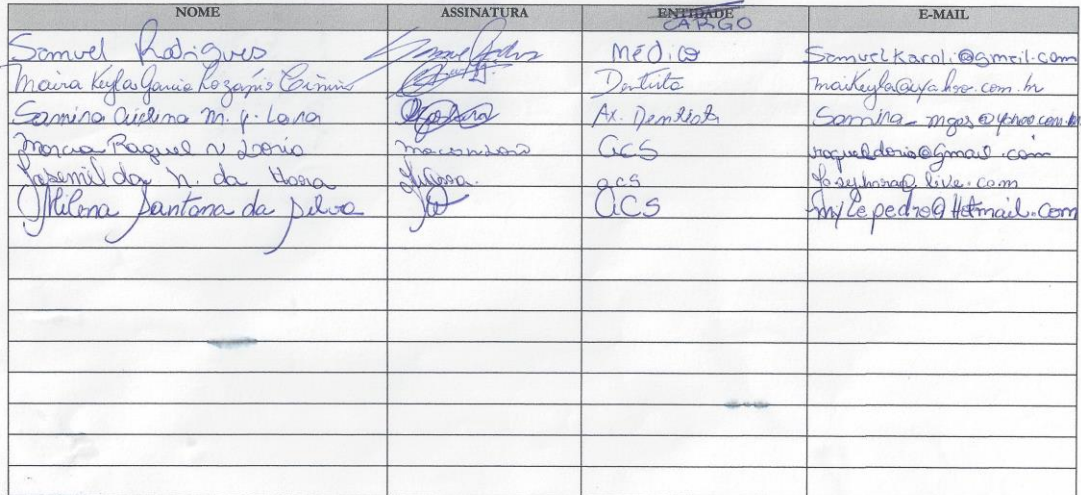 NOME ASSINATURA ENTIDADE E-MAIL
CARGO
Samuel Rodrigues Médico Samuelkaroli@gmail.com
Maira Keyla Garcia Dentista maikeyla@yahoo.com.br
Samira M. g. Lara Ax. Dentista Samira_mgos@yahoo.com.br
Marcia Raquel N Doria ACS raqueldoria@Gmail.com
Josemilda N. da Hora acs Joseyhora@live.com
Milena Santana da Silva ACS mylepedro@Hotmail.com